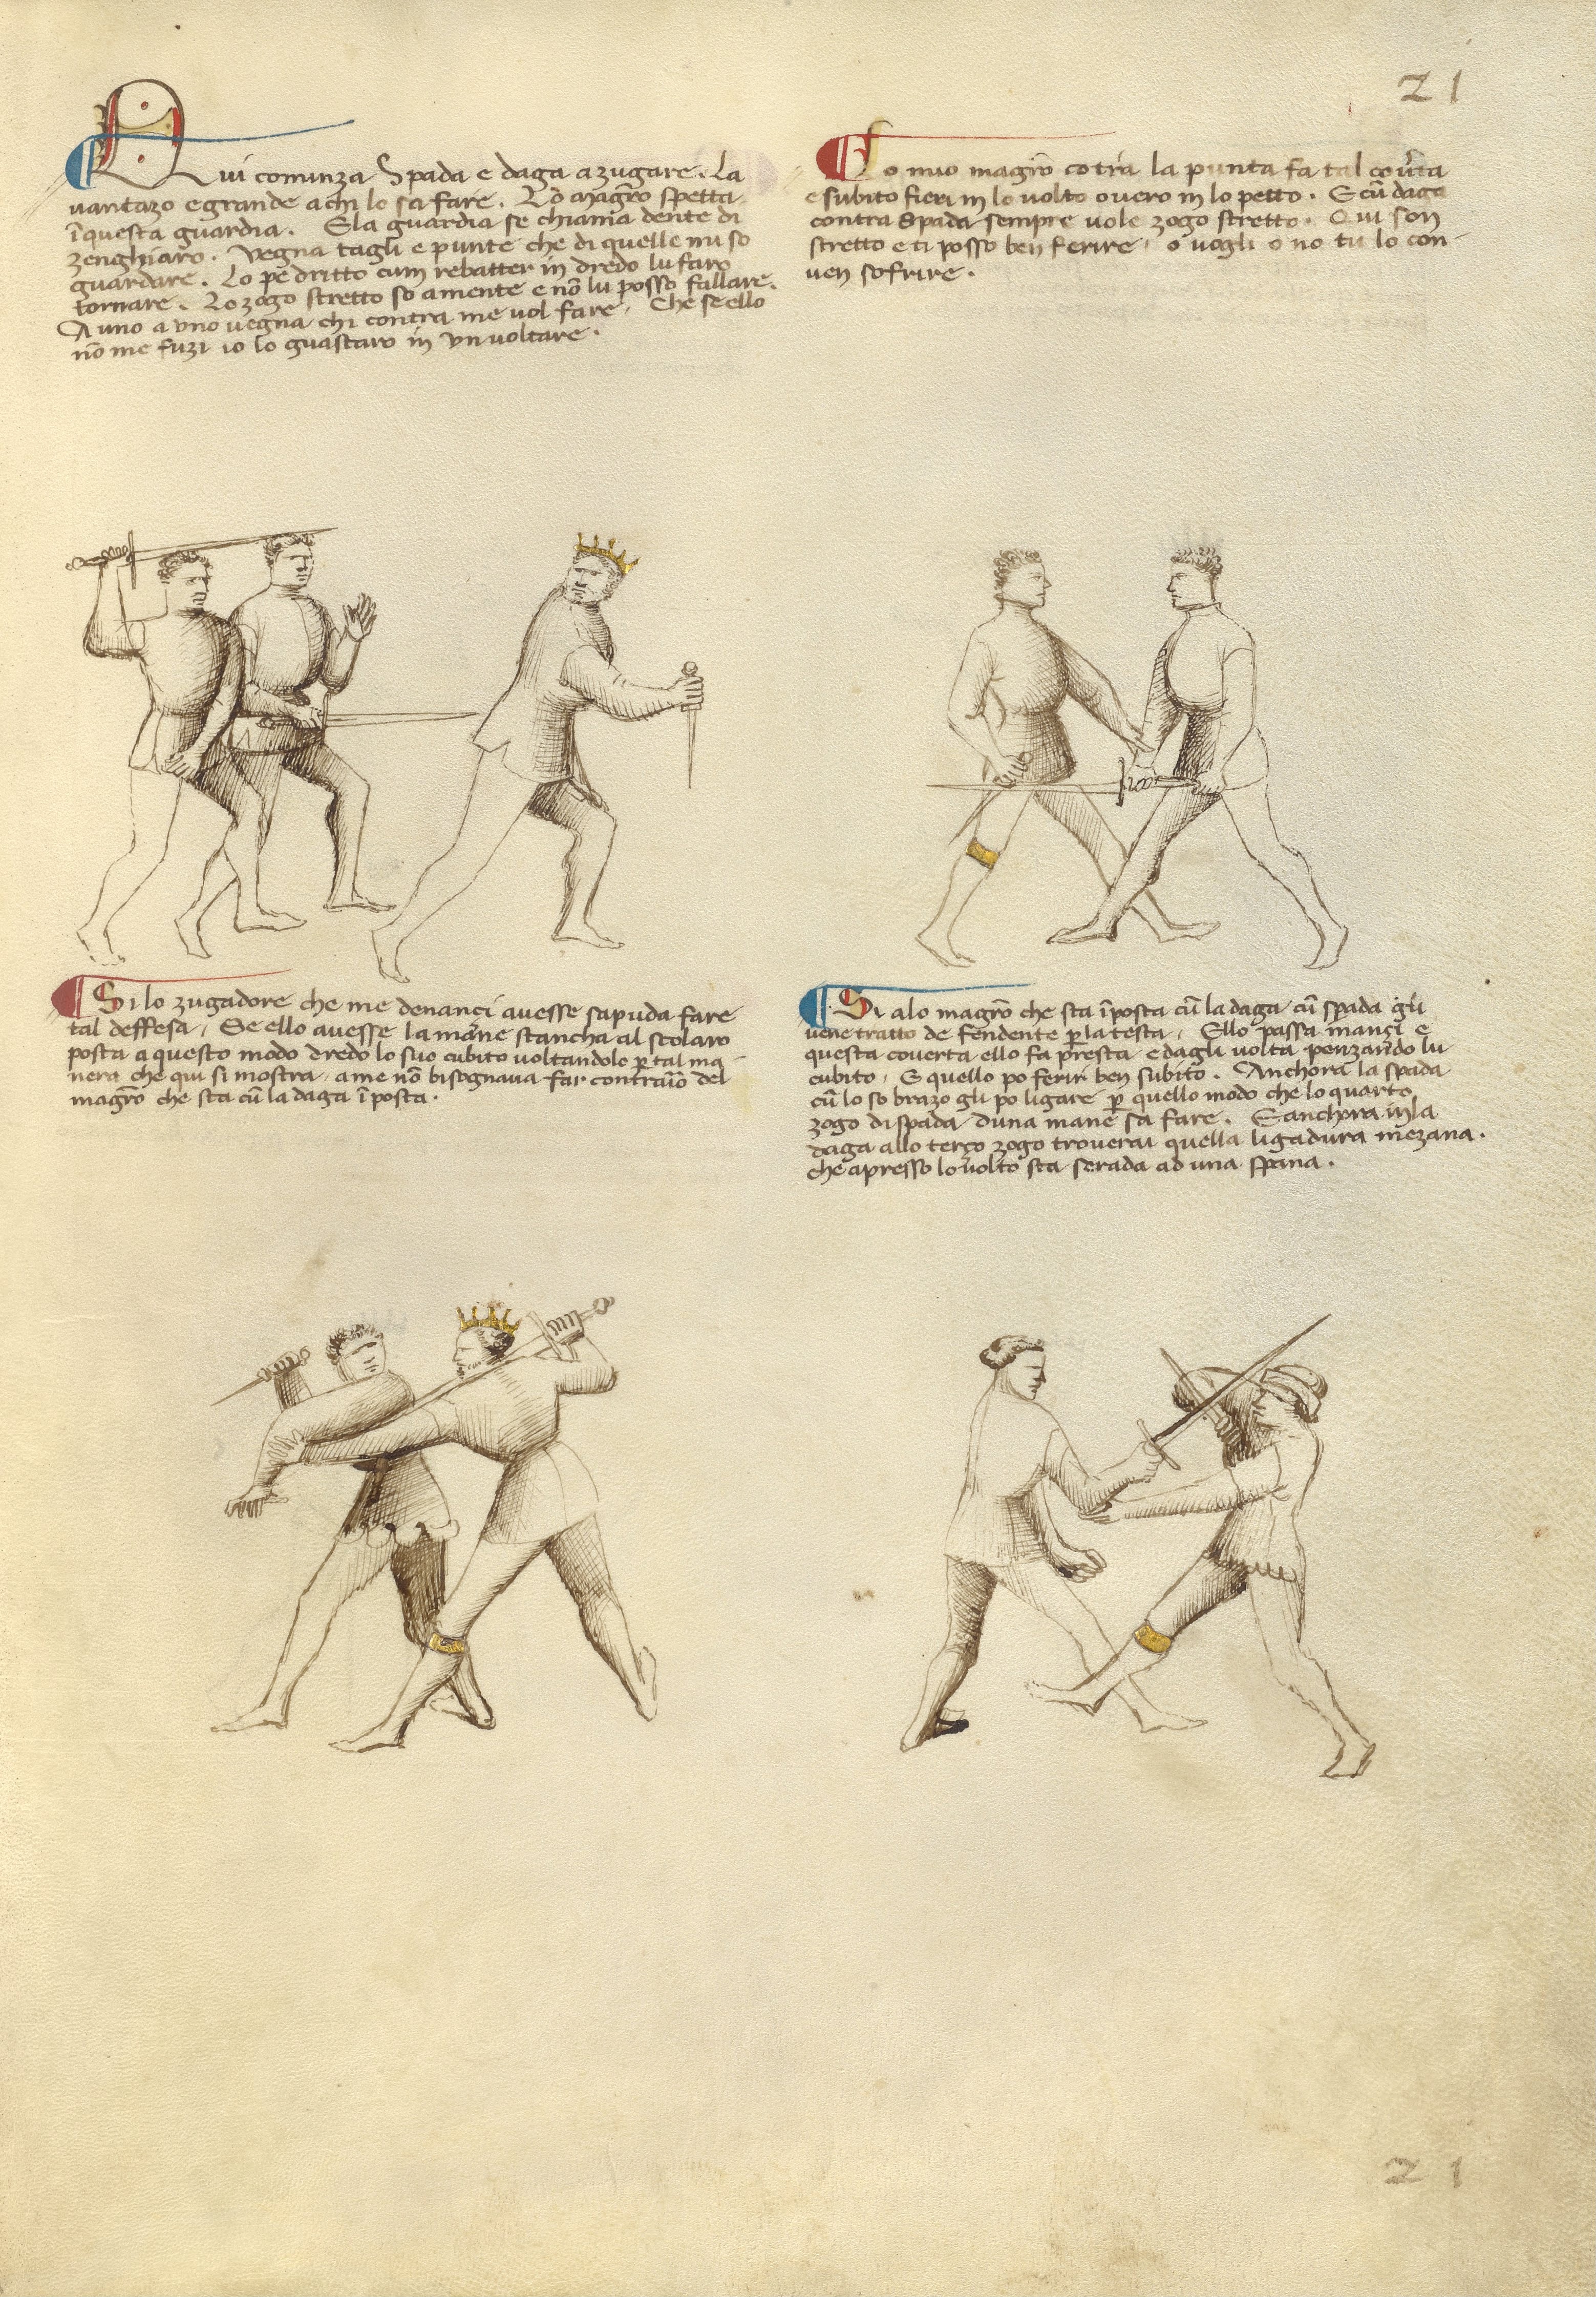 21
Qui cominza Spada e daga a zugare. La
vantazo e grande a chi lo sa fare. Lo Magr̄o spetta
ī questa guardia. E la guardia se chiama dente di
zenghiaro. Vegna tagli e punte che di quelle mi so
guardare. Lo pe dritto cum rebatter in dredo lu faro
tornare. Lo zogo stretto so a mente e nō lu posso fallare.
A uno a uno vegna chi contra me vol fare. Che se ello
nō me fuzi io lo guastaro in un voltare.
Lo mio magr̄o cōtra la punta fa tal cov̄ta
e subito fieri in lo volto overo in lo petto. E cū daga
contra Spada sempre vole zogo stretto. Qui son
stretto e ti posso ben ferire, o vogli o no tu lo con-
ven sofrire.
Si lo zugadore che me denanci avesse sapuda fare
tal deffesa, Se ello avesse la mane stancha al scolaro
posta a questo modo dredo lo suo cubito voltandolo p̱ tal ma-
nera che qui si mostra, a me nō bisognava far contrario del
magr̄o che sta cū la daga ī posta.
Si alo magr̄o che sta ī posta cū la daga cū spada gli
vene tratto de fendente p̱ la testa, Ello passa inanci e
questa coverta ello fa presta e dagli volta penzando lu
cubito, E quello po ferir ben subito. Anchora la spada
cū lo so brazo gli po ligare p̱ quello modo che lo quarto
zogo di spada duna mane sa fare. E anchora in la
daga allo terço zogo troverai quella ligadura mezana.
che apresso lo volto sta serada ad una spana.
21